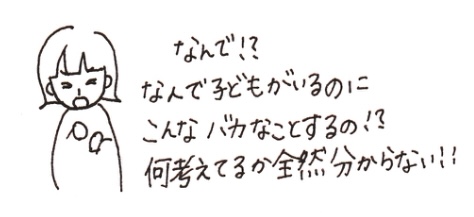 なんで!?
なんで子どもがいるのに
こんなバカなことするの!?
何考えてるか全然分からない!!